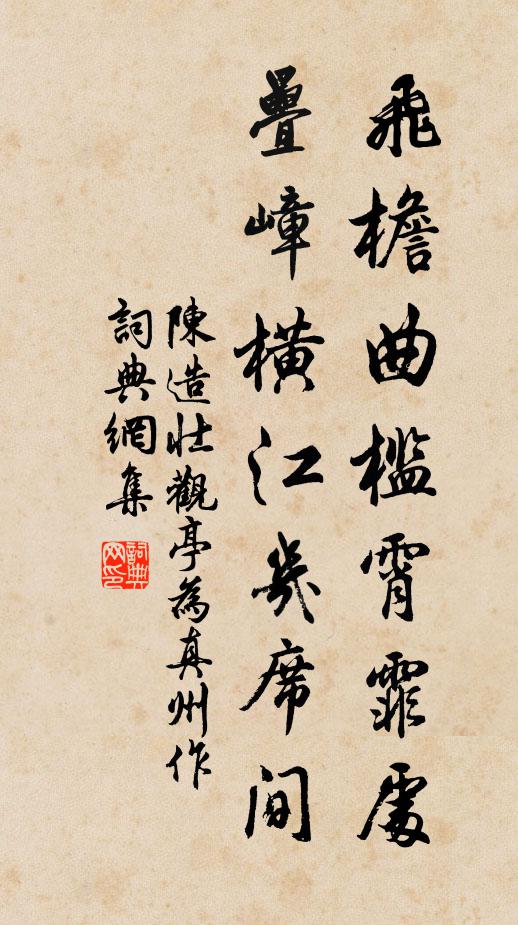 飛檐曲檻霄霏處
疊嶂橫江几席間
陳造壯觀亭為真州作
詞典網集
詞典網印